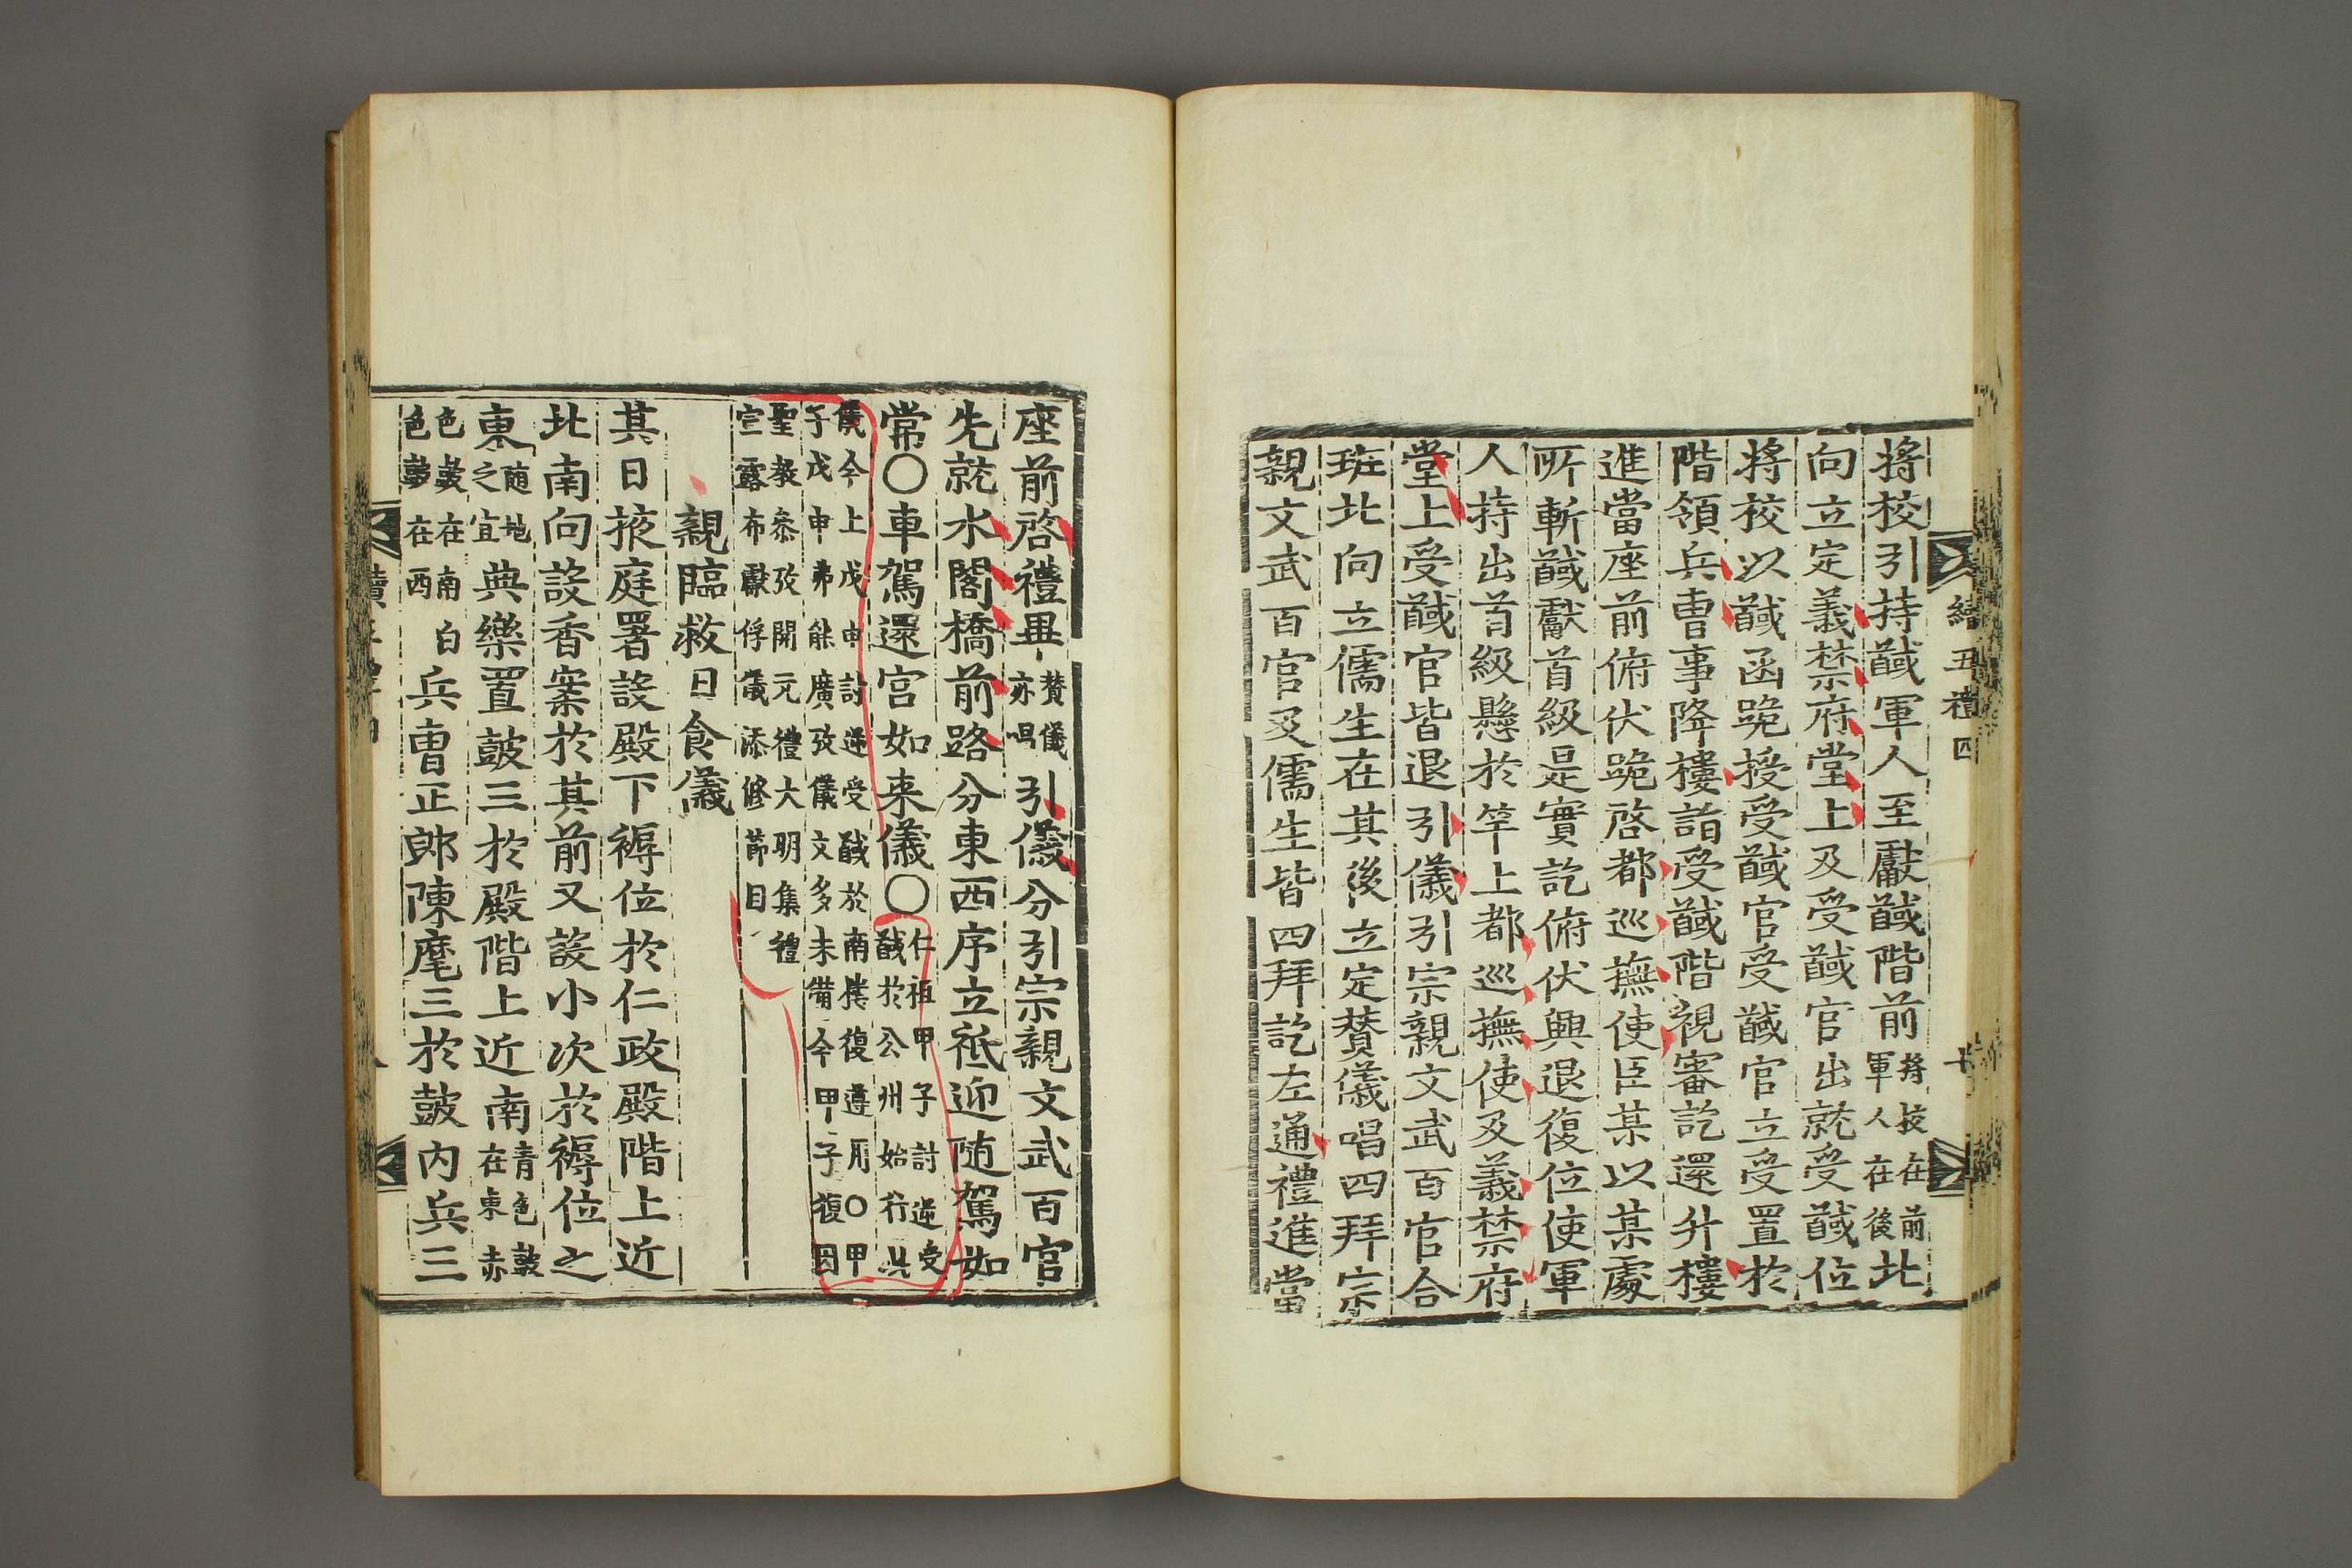 續五禮四
十
將校引持馘軍人至獻馘階前將校在前軍人在後北
向立定義禁府堂上及受馘官出就受馘位
將校以馘函跪授受馘官受馘官立受置於
階領兵曹事降樓詣受馘階視審訖還升樓
進當座前俯伏跪啓都巡撫使臣某以某處
所斬馘獻首級是實訖俯伏興退復位使軍
人持出首級懸於竿上都巡撫使及義禁府
堂上受馘官皆退引儀引宗親文武百官合
班北向立儒生在其後立定贊儀唱四拜宗
親文武百官及儒生皆四拜訖左通禮進當
座前啓禮畢贊儀亦唱引儀分引宗親文武百官
先就水閣橋前路分東西序立祗迎随駕如
常〇車駕還宮如來儀〇仁祖甲子討逆受馘於公州始行此
儀今上戊申討逆受馘於南樓復遵用〇甲子戊申弗能廣攷儀文多未備今甲子復因
聖敎叅攷開元禮大明集禮宣露布獻俘儀添修節目
親臨救日食儀
其日掖庭署設殿下褥位於仁政殿階上近
北南向設香案於其前又設小次於褥位之
東随地之宜典樂置鼓三於殿階上近南青色鼓在東赤
色鼓在南白色鼓在西兵曹正郎陳麾三於鼓內兵三